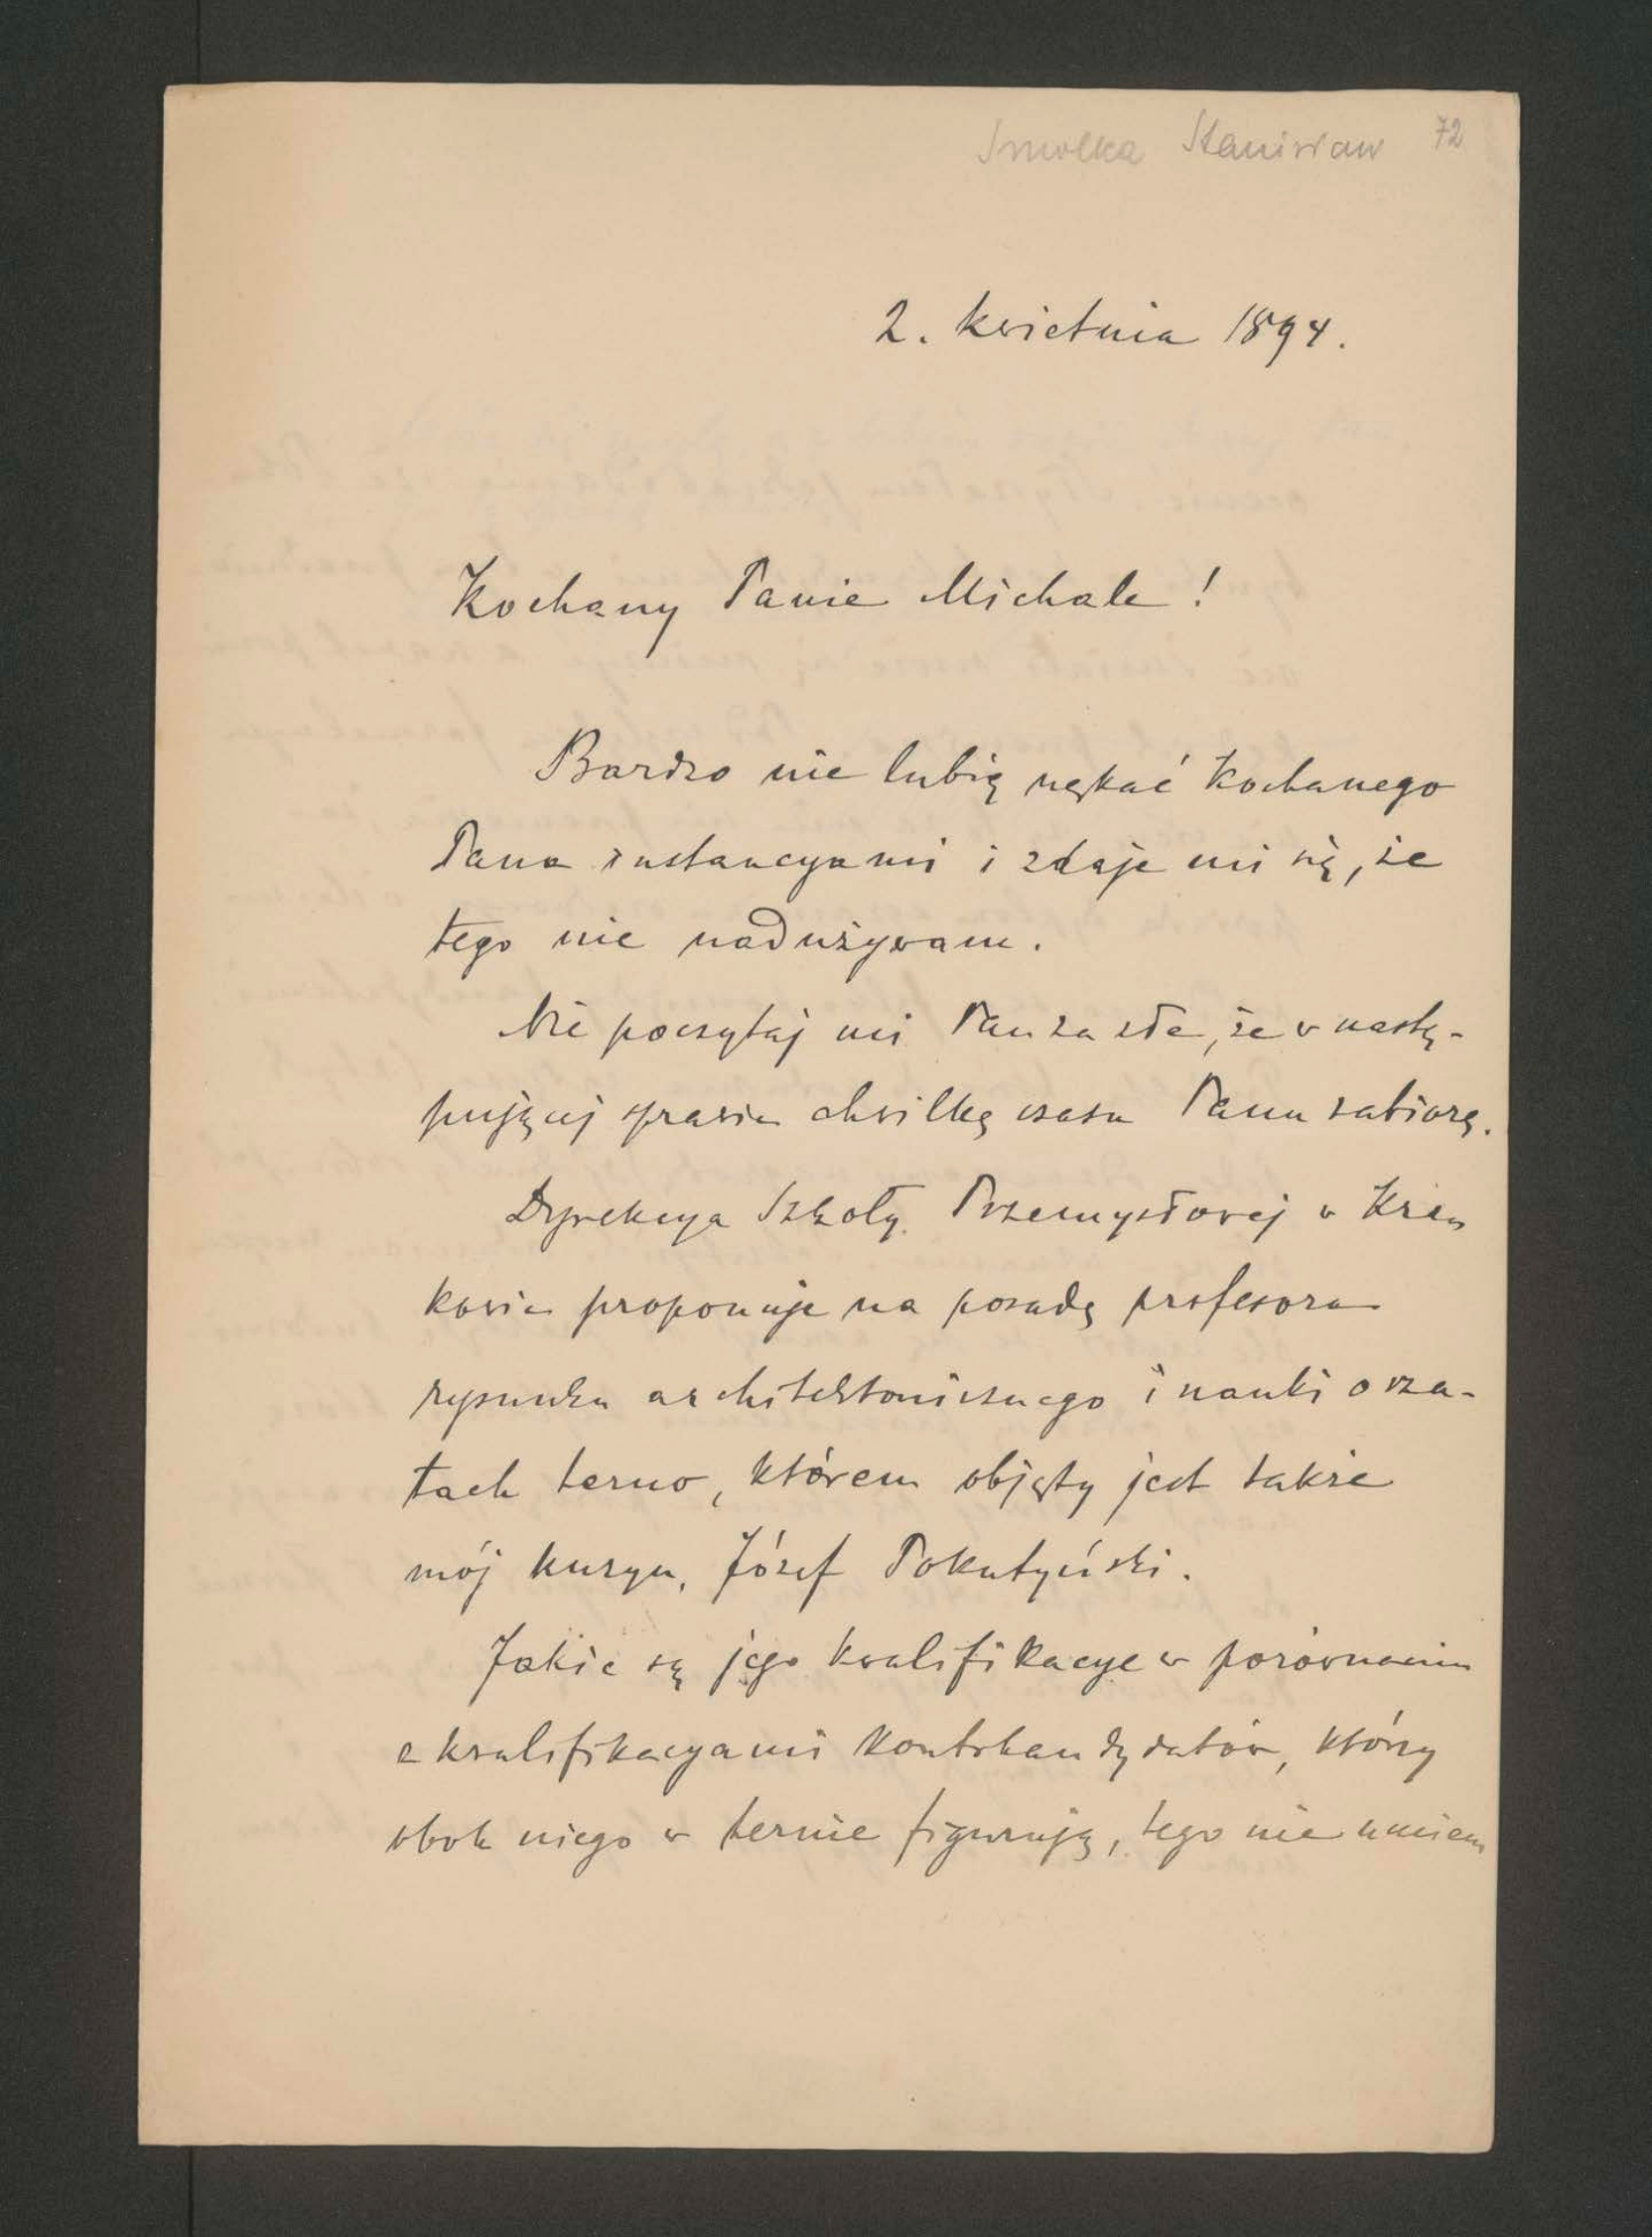 Smolka Stanisław 72
2. kwietnia 1894.
Kochany Panie Michale!
Bardzo nie lubię nękać kochanego
Pana instancyami i zdaje mi się, że
tego nie nadużywam.
Nie poczytaj mi Pan za złe, że w nastę-
pującej sprawie chwilkę czasu Panu zabiorę.
Dyrekcya Szkoły Przemysłowej w Kra-
kowie proponuje na posadę profesora
rysunku architektonicznego i nauki o
tach terno, którem objęty jest także
mój kuzyn, Józef Pokutyński.
Jakie są jego kwalifikacye w porównaniu
z kwalifikacyami kontrkandydatów, którzy
obok niego w ternie figurują, tego nie umiem